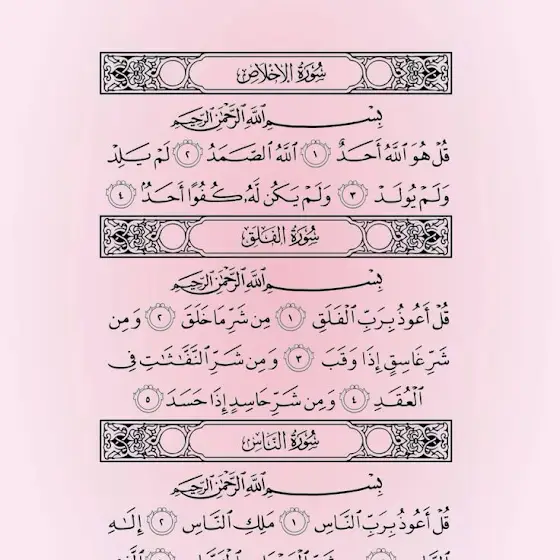 سُورَةُ الإِخْلَاصِ
بِسْمِ اللَّهِ الرَّحْمَٰنِ الرَّحِيمِ
قُلْ هُوَ اللَّهُ أَحَدٌ ١ اللَّهُ الصَّمَدُ ٢ لَمْ يَلِدْ
وَلَمْ يُولَدْ ٣ وَلَمْ يَكُن لَّهُۥ كُفُوًا أَحَدٌۢ ٤
سُورَةُ الفَلَقِ
بِسْمِ اللَّهِ الرَّحْمَٰنِ الرَّحِيمِ
قُلْ أَعُوذُ بِرَبِّ الْفَلَقِ ١ مِن شَرِّ مَا خَلَقَ ٢ وَمِن
شَرِّ غَاسِقٍ إِذَا وَقَبَ ٣ وَمِن شَرِّ النَّفَّٰثَٰتِ فِي
الْعُقَدِ ٤ وَمِن شَرِّ حَاسِدٍ إِذَا حَسَدَ ٥
سُورَةُ النَّاسِ
بِسْمِ اللَّهِ الرَّحْمَٰنِ الرَّحِيمِ
قُلْ أَعُوذُ بِرَبِّ النَّاسِ ١ مَلِكِ النَّاسِ ٢ إِلَٰهِ